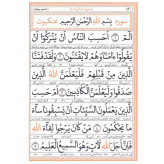 سوره بِسْمِ اللهِ الرَّحْمٰنِ الرَّحيمِ عنکبوت
الٓمٓ ﴿١﴾ أَحَسِبَ النَّاسُ أَنْ يُتْرَكُوا أَنْ
يَقُولُوا آمَنَّا وَهُمْ لَا يُفْتَنُونَ ﴿٢﴾ وَلَقَدْ فَتَنَّا
الَّذِينَ مِنْ قَبْلِهِمْ فَلَيَعْلَمَنَّ اللهُ الَّذِينَ
صَدَقُوا وَلَيَعْلَمَنَّ الْكَاذِبِينَ ﴿٣﴾ أَمْ حَسِبَ الَّذِينَ
يَعْمَلُونَ السَّيِّئَاتِ أَنْ يَسْبِقُونَا سَاءَ مَا
يَحْكُمُونَ ﴿٤﴾ مَنْ كَانَ يَرْجُو لِقَاءَ اللهِ
فَإِنَّ أَجَلَ اللهِ لَآتٍ وَهُوَ السَّمِيعُ الْعَلِيمُ ﴿٥﴾